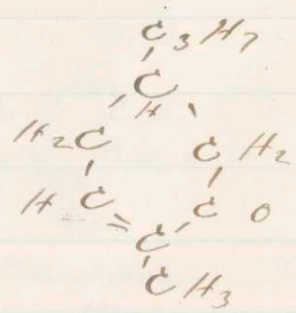 C3H7
C
H
H2C C H2
H C C O
C
CH3